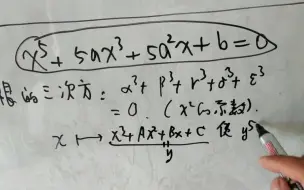 x⁵ + 5ax³ + 5a²x + b = 0
根的三次方: α³ + β³ + γ³ + δ³ + ε³
= 0. (x²的系数).
x ↦ x³ + Ax² + Bx + C 使 y⁵
y